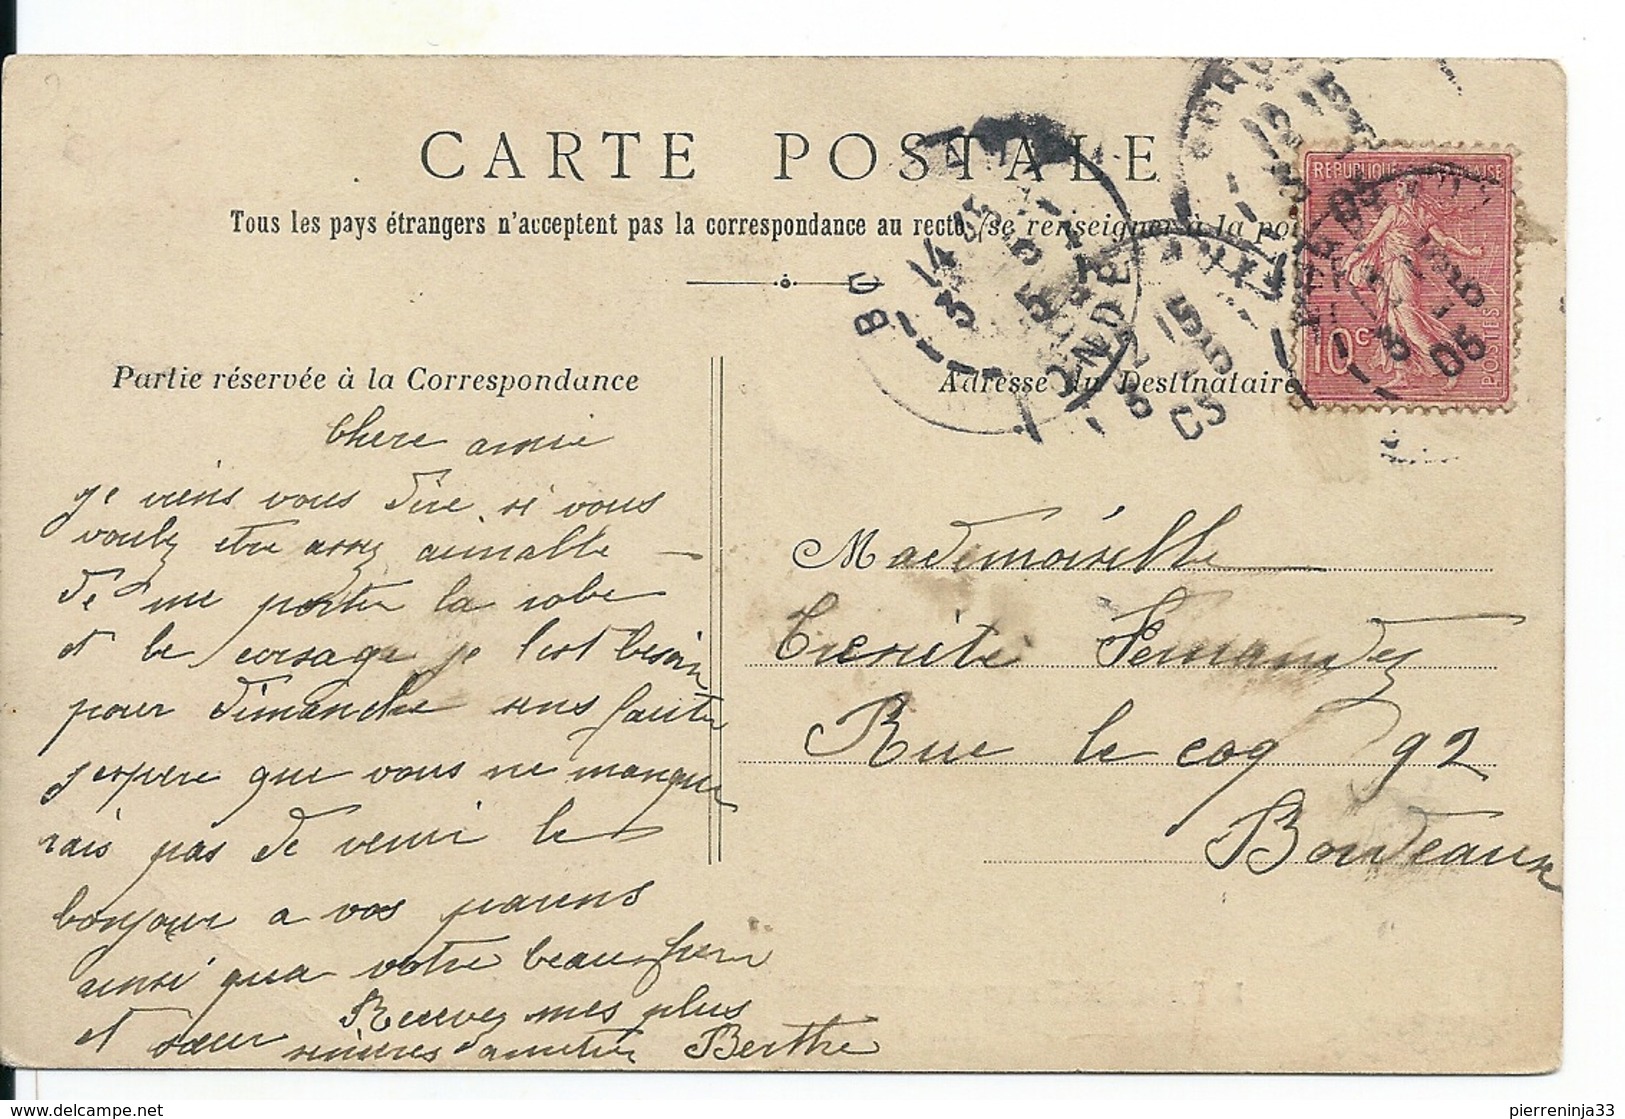 CARTE POSTALE
Tous les pays étrangers n'acceptent pas la correspondance au recto (se renseigner à la
Partie réservée à la Correspondance
Chere amie
je viens vous dire si vous
voulez etre assez aimable
de me porter la robe
et le corsage je l'est besoin
pour dimanche sens faute
j'espere que vous ne manque
rais pas de venir le
bonjour a vos parens
ainsi qua votre beau frere
et sœur Recevez mes plus
sincères d'amitiés Berthe
Adresse du Destinataire
REPUBLIQUE
10c
POSTES
Mademoiselle
Fernandez
Rue le coq 92
Bordeaux
pierreninja33